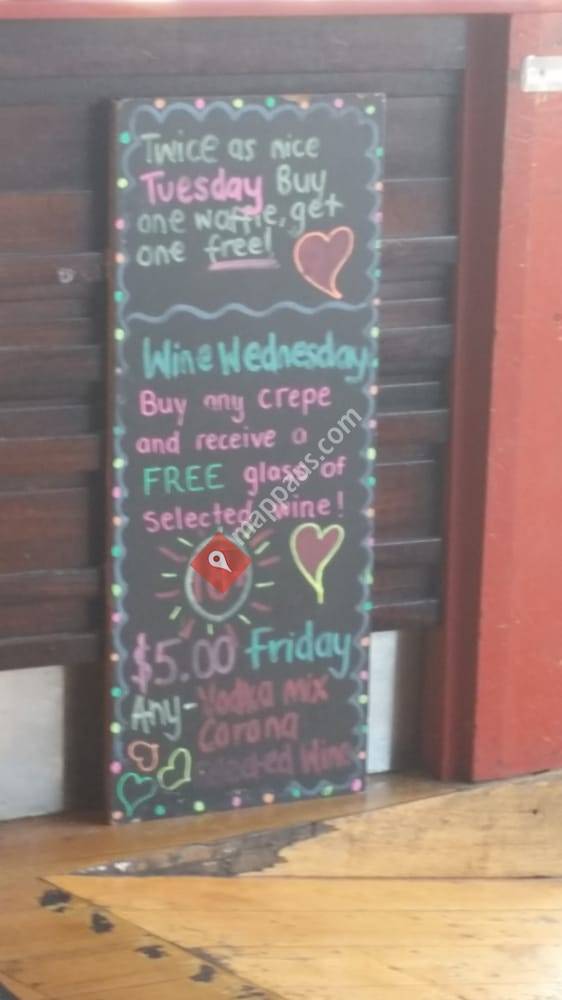 Twice as nice
Tuesday Buy
one waffle, get
one free!
Wine Wednesday
Buy any crepe
and receive a
FREE glass of
selected wine!
mappaus.com
$5.00 Friday
Any- Vodka mix
Corona
Selected Wine